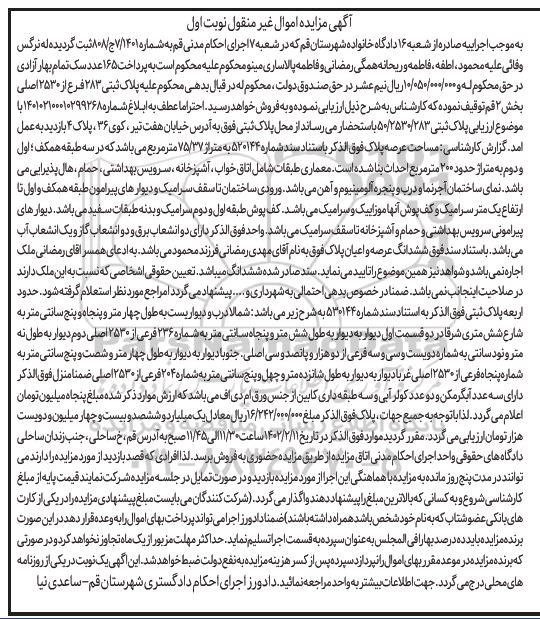 آگهی مزایده اموال غیر منقول نوبت اول
به موجب اجراییه صادره از شعبه ۱۶ دادگاه خانواده شهرستان قم که در شعبه ۷ اجرای احکام مدنی قم به شماره ۷/۱۴۰۱ج/۸۰۸ ثبت گردیده له نرگس
وفائی علیه محمود، اطفه، فاطمه و ریحانه همگی رمضانی و فاطمه پالاساری مینو محکوم علیه محکوم است به پرداخت ۱۶۵ عدد سک تمام بهار آزادی
در حق محکوم لـه و ۱۰/۰۵۰/۰۰۰/۰۰۰ ریال نیم عشـر در حق صنـدوق دولت ، محکوم لـه در قبال بدهـی محکوم علیـه پلاک ثبتی ۲۸۳ فـرع از ۲۵۳۰ اصلی
بخش ۲ قم توقیف نموده که کارشناس به شرح ذیل ارزیابی نموده و به فروش خواهد رسید. احتراما عطف به ابلاغ شماره ۱۴۰۱۰۲۱۰۰۰۱۰۲۹۹۲۶۸ با
موضوع ارزیابی پلاک ثبتی ۵۰/۲۵۳۰/۲۸۳ با استحضار می رساند از محل پلاک ثبتی فوق به آدرس خیابان هفت تیر ، کوی ۳۶ ، پلاک ۴ بازدید به عمل
امد. گزارش کارشناسی : مساحت عرصه پلاک فوق الذکر باستناد سند شماره ۵۲۰۱۴۴ به متراژ ۷۵/۳۷ مترمربع می باشد که در سه طبقه همکف ؛ اول
و دوم به متراژ حدود ۲۰۰ مترمربع احداث بنا شده است. معماری طبقات شامل اتاق خواب ، آشپزخانه ، سرویس بهداشتی ، حمام ، هال پذیرایی می
باشد. نمای ساختمان آجرنما و درب و پنجره آلومینیوم و آهن می باشد. ورودی ساختمان تا سقف سرامیک و دیوار های پیرامون طبقه همکف و اول تا
ارتفاع یک متر سـرامیک و کف پوش آنها موزاییک و سرامیک می باشـد. کف پوش طبقه اول و دوم سـرامیک و بدنه طبقات سـفید می باشـد. دیوار های
پیرامونی سرویس بهداشتی و حمام و آشپزخانه تا سقف سرامیک می باشد. واحد فوق الذکر دارای دو انشعاب برق و دو انشعاب گاز و یک انشعاب آب
می باشد . باستناد سند فوق ششدانگ عرصه و اعیان پلاک فوق به نام آقای مهدی رمضانی فرزند محمود می باشد. به ادعای همسر اقای رمضانی ملک
اجاره نمی باشد و شواهد نیز همین موضوع را تایید می نماید. سند صادر شده ششدانگ میباشد. تعیین حقوقی اشخاصی که نسبت به این ملک دارند
در صلاحیت اینجانب نمی باشد. ضمنا در خصوص بدهی احتمالی به شهرداری و.... پیشنهاد می گردد از مراجع مورد نظر استعلام گرفته شود. حدود
اربعه پلاک ثبتی فوق الذکر به استناد سند شماره ۵۲۰۱۴۴ به شرح زیر می باشد : شمالا درب و دیواریست به طول چهار متر و پنجاه و پنج سانتی متر به
شارع شش متری شرقا در دو قسمت اول دیوار به دیوار به طول شش متر و پنجاه سانتی متر به شماره ۲۳۶ فرعی از ۲۵۳۰ اصلی دوم دیوار به طول نه
متر و نود سانتی به شماره دویست وسی وسه فرعی از دو هزار و پانصد و سی اصلی. جنوبا دیوار به دیوار به طول چهار متر و شصت و پنج سانتی متر به
شماره پنجاه فرعی از ۲۵۳۰ اصلی غربا دیوار به دیوار به طول شانزده متر و چهل و پنج سانتی متر به شماره ۲۰۴ فرعی از ۲۵۳۰ اصلی ضمنا منزل فوق الذکر
دارای سـه عدد آبگرمکن و دو عدد کولر آبی و سه طبقه داری کابین از جنس ورق ام دی اف می باشد که ارزش موارد ذکر شده مبلغ پنجاه میلیون تومان
اعلام می گردد. لذا با توجه به جمیع جهات ، پلاک فوق الذکر مبلغ ۱۶/۲۴۲/۰۰۰/۰۰۰ ریال معادل یک میلیارد و ششصد و بیست و چهار میلیون و دویست
هزار تومان ارزیابی می گردد. مقرر گردید موارد فوق الذکر در تاریخ ۱۴۰۲/۲/۱۱ ساعت ۱۱/۳۰ الی ۱۱/۴۵ صبح به آدرس قم ، خ ساحلی ، جنب زندان ساحلی
دادگاه های حقوقی واحد اجرای احکام مدنی اتاق مزایده از طریق مزایده حضوری به فروش برسد. لذا افرادی که قصد بازدید از مورد مزایده را دارند می
توانند در مدت پنج روز مانده به مزایده با هماهنگی این اجرا از مورد مزایده بازدید و در صورت تمایل در جلسه مزایده شرکت نمایند قیمت پایه از مبلغ
کارشناسی شروع و به کسانی که بالاترین مبلغ را پیشنهاد دهند واگذار می گردد. (شرکت کنندگان می بایست مبلغ پیشنهادی مزایده را در یکی از کارت
های بانکی عضو شتاب که به نام خود شخص باشد همراه داشته باشند) ضمنا دادورز اجرا می تواند پرداخت بهای اموال را به وعده قرار دهد در این صورت
برنده مزایده باید ده درصد بها را فی المجلس به عنوان سپرده به قسمت اجرا تسلیم نماید. حداکثر مهلت مزبور از یک ماه تجاوز نخواهد کرد و در صورتی
که برنده مزایده در موعد مقرر بهای اموال را نپردازد سپرده پس از کسر هزینه مزایده به نفع دولت ضبط خواهد شد. این آگهی یک نوبت در یکی از روزنامه
های محلی درج می گردد. جهت اطلاعات بیشتر به واحد مراجعه نمائید. دادورز اجرای احکام دادگستری شهرستان قم - ساعدی نیا